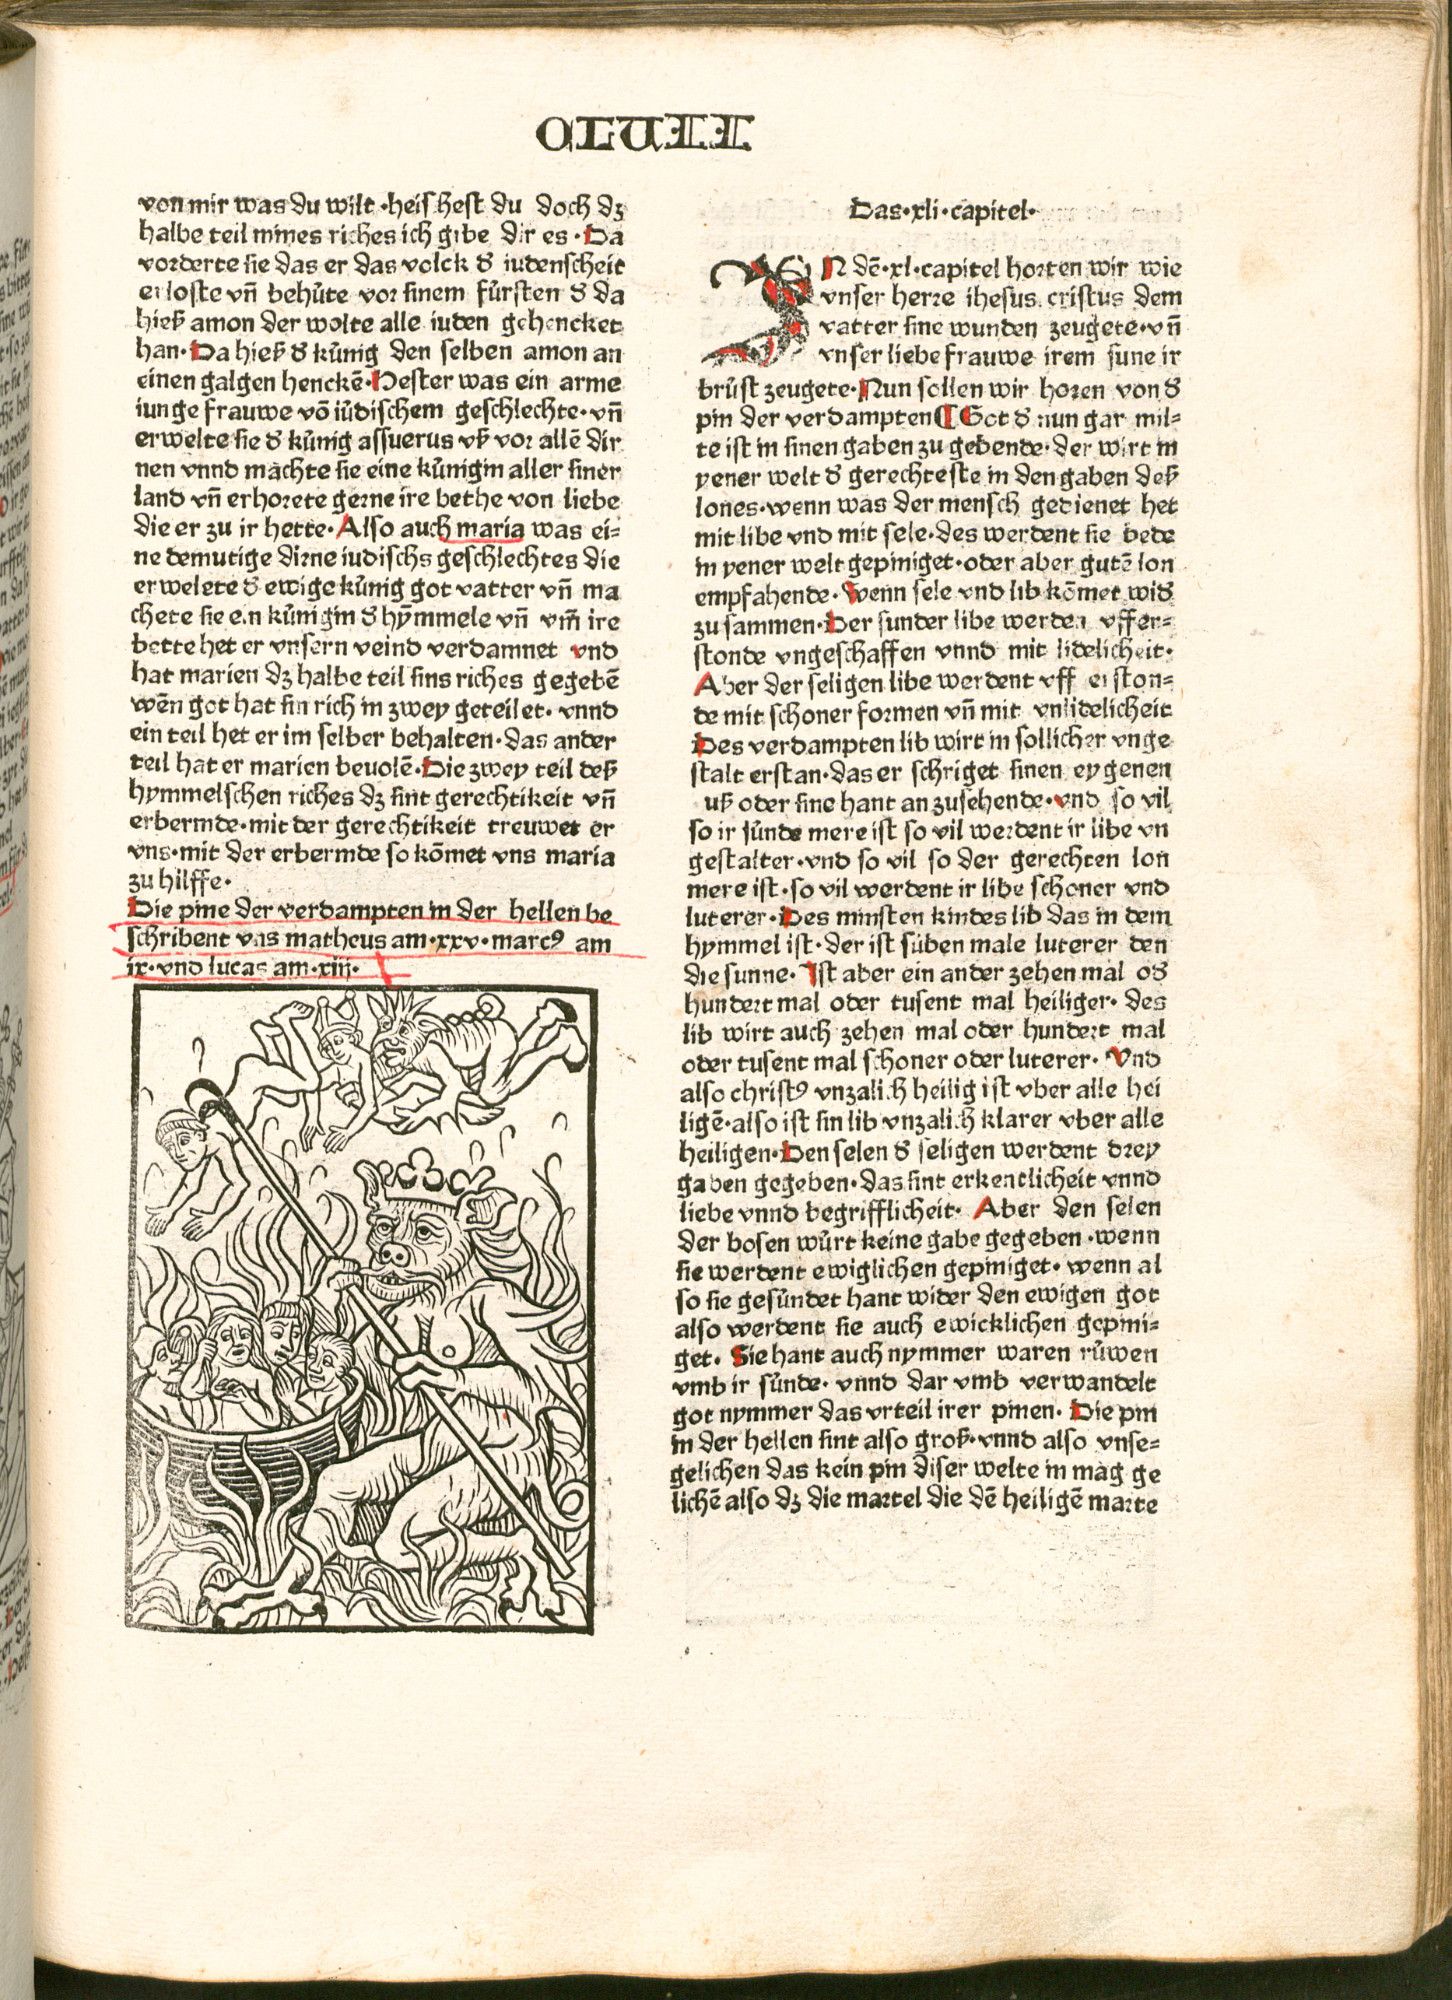 CLVII
von mir was du wilt ·heischest du doch dʒ
halbe teil mines riches ich gibe dir es · Da
vorderte sie das er das volck d̕ iudenscheit
erloste vn̄ behůte vor sinem fůrsten d̕ da
hieß amon der wolte alle iuden gehencket
han· Da hieß d̕ kůnig den selben amon an
einen galgen henckē· Hester was ein arme
iunge frauwe vō iůdischem geschlechte· vn̄
erwelte sie d̕ kůnig assuerus vß vor allē dir
nen vnnd machte sie eine kůnigin aller siner
land vn̄ erhorete gerne ire bethe von liebe
die er zu ir hette· Also auch maria was ei=
ne demutige dirne iudischs geschlechtes die
erwelete d̕ ewige kůnig got vatter vn̄ ma
chete sie ein kůnigin d̕ hym̄mele vn̄ vm̄ ire
bette het er vnsern veind verdamnet vnd
hat marien dʒ halbe teil sins riches gegebē
wēn got hat sin rich in zwey geteilet· vnnd
ein teil het er im selber behalten· das ander
teil hat er marien bevolē· Die zwey teil deß
hymmelschen riches dʒ sint gerechtikeit vn̄
erbermde· mit der gerechtikeit treuwet er
vns· mit der erbermde so kōmet vns maria
zu hilffe·
Die pine der verdampten in der hellen be
schribent vns matheus am· xxv· marcꝰ am
ix· vnd lucas am· xiii·
Das· xli· capitel·
IN dē· xl· capitel horten wir wie
vnser herre ihesus cristus dem
vatter sine wunden zeugete· vn̄
vnser liebe frauwe irem sune ir
brůst zeugete· Nun sollen wir horen von d̕
pin der verdampten ¶ Got d̕ nun gar mil=
te ist in sinen gaben zu gebende· der wirt in
yener welt d̕ gerechteste in den gaben deß
lones· wenn was der mensch gedienet het
mit libe vnd mit sele· des werdent sie bede
in yener welt gepiniget· oder aber gutē lon
empfahende· Wenn sele vnd lib kōmet wid̕
zu sammen· Der sunder libe werden vffer=
stonde vngeschaffen vnnd mit lidelicheit·
Aber der seligen libe werdent vff erston=
de mit schoner formen vn̄ mit vnlidelicheit
Des verdampten lib wirt in sollicher vnge
stalt erstan· das er schriget sinen eygenen
uß oder sine hant an zusehende· vnd so vil
so ir sůnde mere ist so vil werdent ir libe vn
gestalter· vnd so vil so der gerechten lon
mere ist· so vil werdent ir libe schoner vnd
luterer· Des minsten kindes lib das in dem
hymmel ist· der ist süben male luterer den
die sunne· Ist aber ein ander zehen mal od̕
hundert mal oder tusent mal heiliger· des
lib wirt auch zehen mal oder hundert mal
oder tusent mal schoner oder luterer· Vnd
also christꝰ vnzalich heilig ist vber alle hei
ligē· also ist sin lib vnzalich klarer vber alle
heiligen· Den selen d̕ seligen werdent drey
gaben gegeben· das sint erkentlicheit vnnd
liebe vnnd begrifflicheit· Aber den selen
der bosen wůrt keine gabe gegeben ·wenn
sie werdent ewiglichen gepiniget· wenn al
so sie gesůndet hant wider den ewigen got
also werdent sie auch ewicklichen gepini=
get· Sie hant auch nymmer waren růwen
vmb ir sůnde· vnnd dar vmb verwandelt
got nymmer das vrteil irer pinen· Die pin
in der hellen sint also groß· vnnd also vnse=
gelichen das kein pin diser welte in mag ge
lichē also dʒ die martel die dē heiligē marte